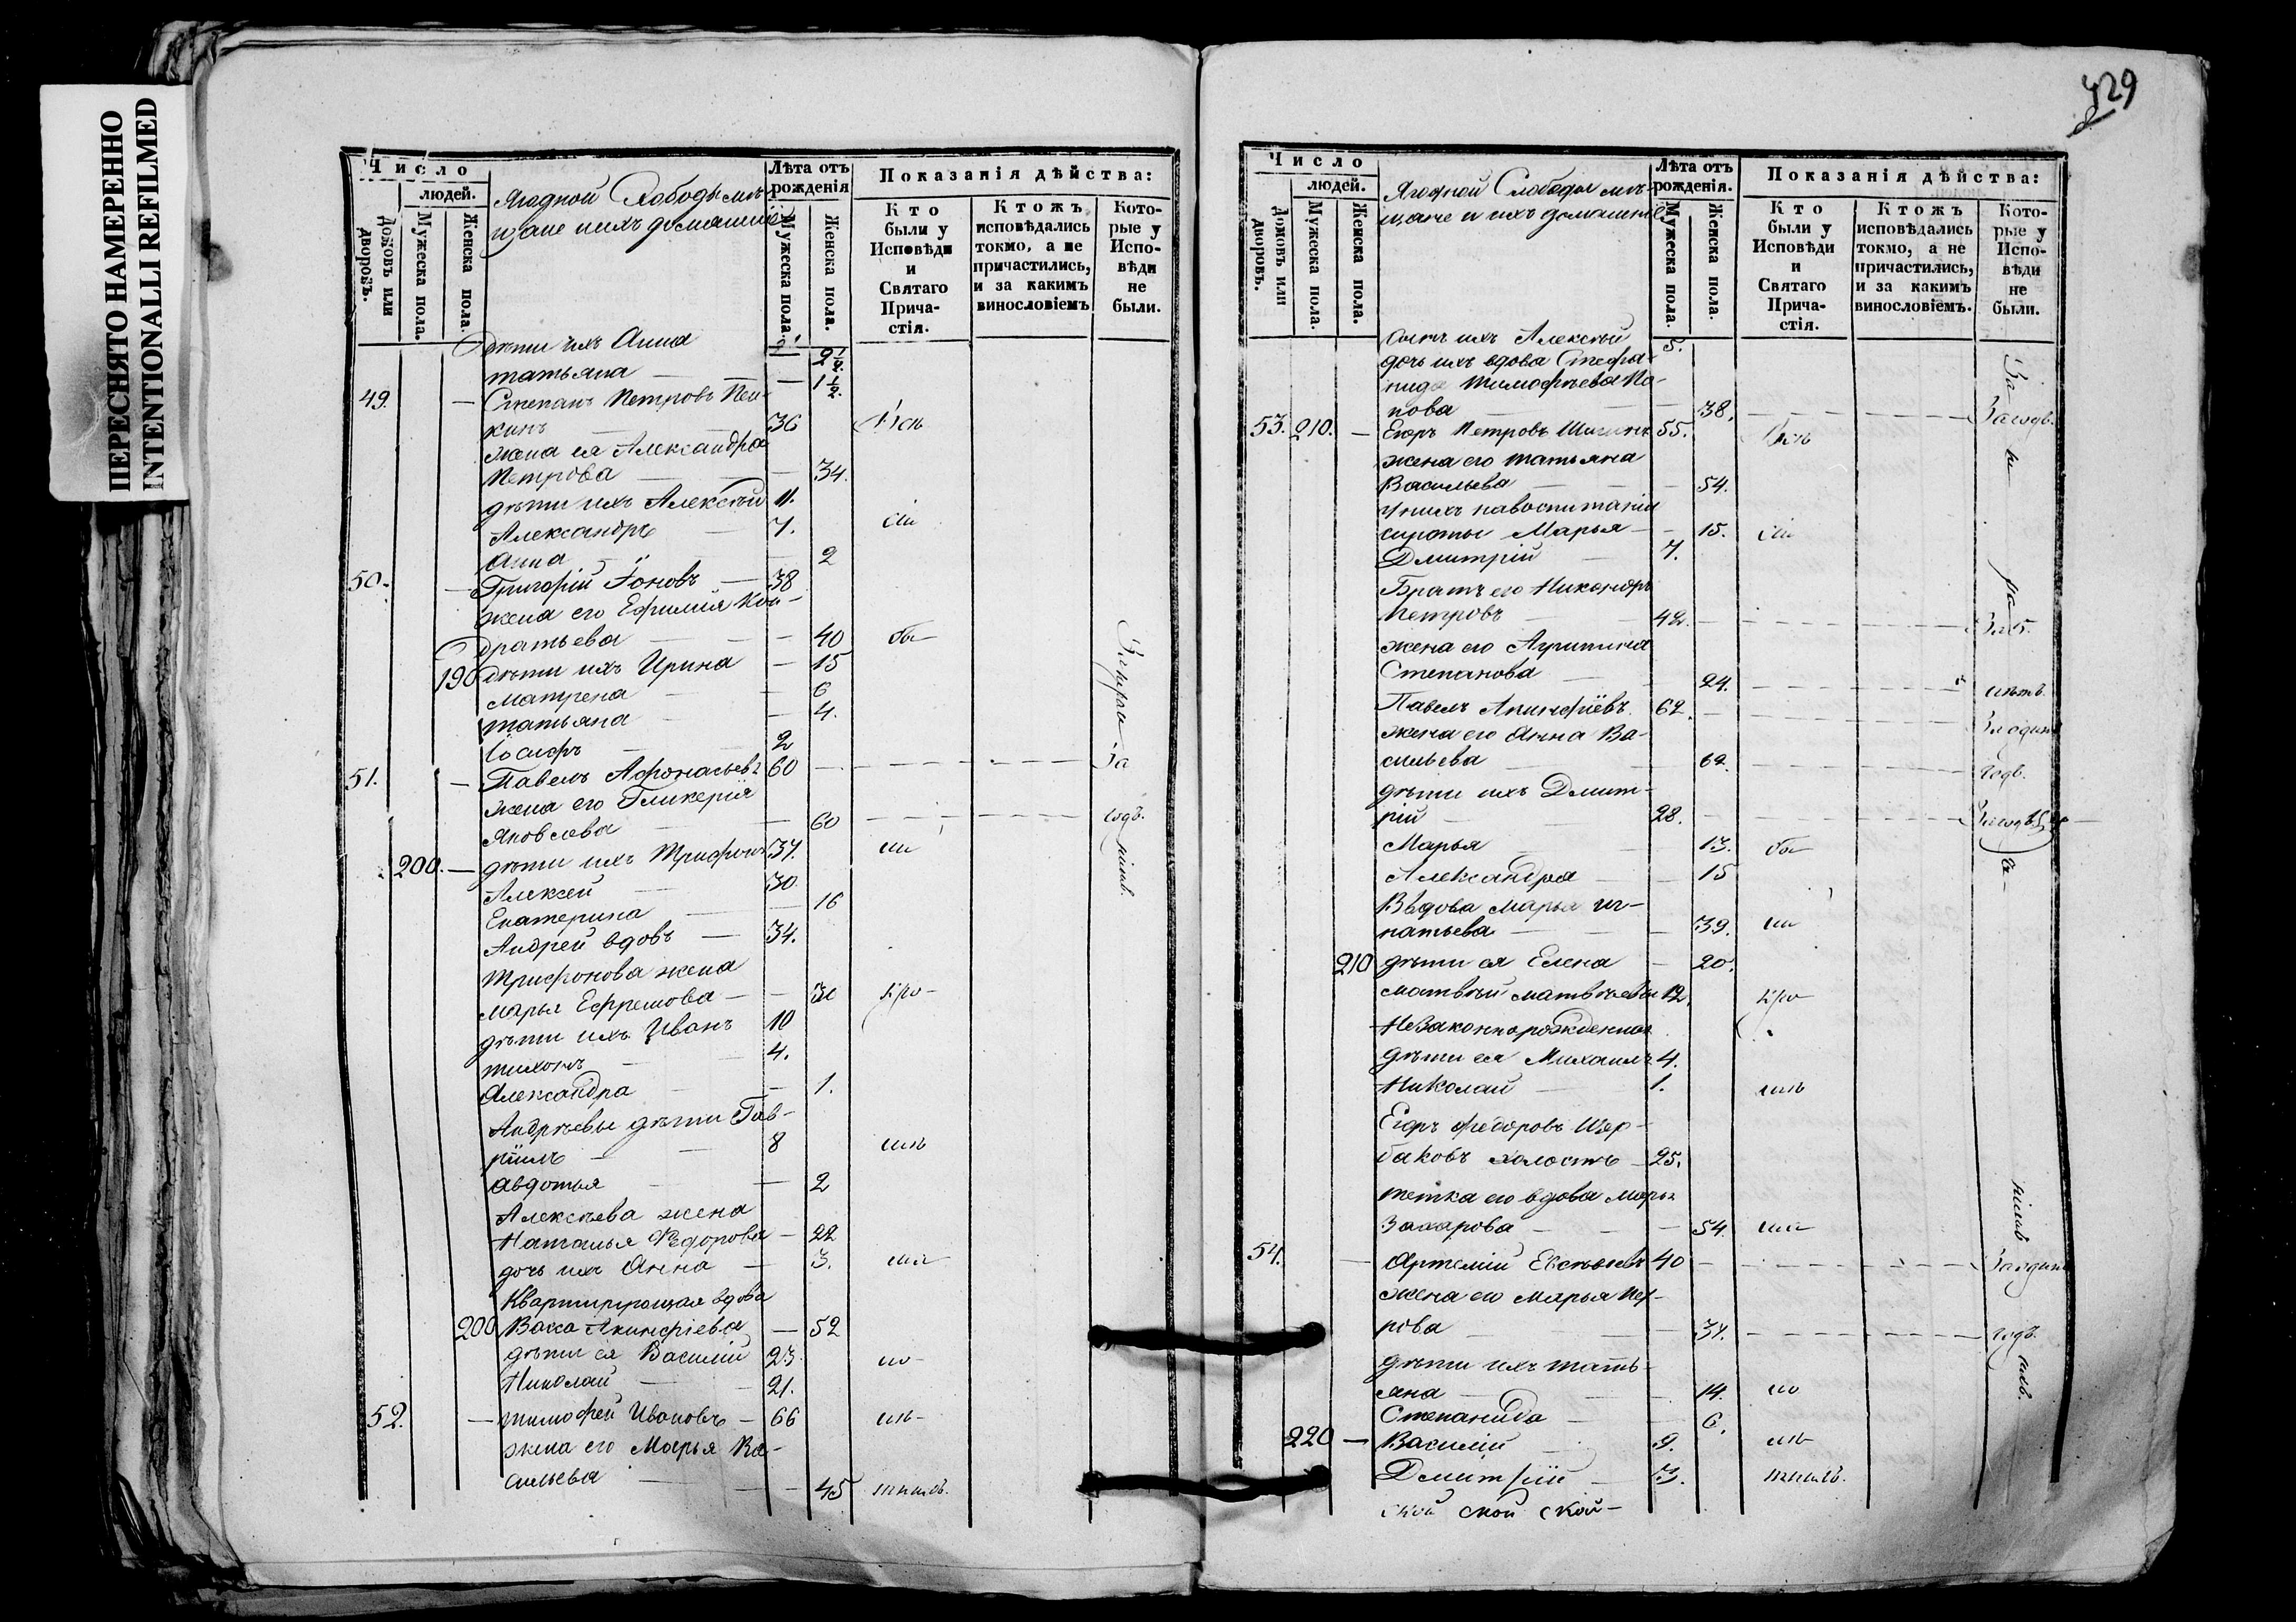 ПЕРЕСНЯТО НАМЕРЕННО
INTENTIONALLI REFILMED
Число
людей.
Домовъ или дворовъ.
Мужеска пола.
Женска пола.
Ягодной Слободы мѣ-
щане и ихъ домашніе
Лѣта отъ рожденія
Мужеска пола.
Женска пола.
Показанія дѣйства:
Кто были у Исповѣди и Святаго Прича-стія.
Ктожъ исповѣдались токмо, а не причастились, и за какимъ винословіемъ
Кото-рые у Испо-вѣди не были.
дѣти ихъ Анна 2 1/2
татьяна — 1 1/2
49. — Степанъ Петровъ
кинъ 36 Всѣ
жена ея Александра
Петрова — 34.
дѣти ихъ Алексѣй 11.
Александръ 7. сіи
Анна — 2
50. — Григорій Іоновъ — 38
жена его Ефимія Кон-
дратьева — 40 бы-
190 дѣти ихъ Ирина — 15
Матрена — 6
татьяна — 4.
Іосифъ 2
51. — Павелъ Афонасьевъ 60 За
жена его Гликерія
Яковлева — 60 годъ.
200. — дѣти ихъ Трифонъ 37. ли
Алексей 30
Екатерина — 16
Андрей вдовъ — 34.
Трифонова жена
марья Ефремова — 30 Кро-
дѣти ихъ Иванъ 10
тихонъ 4.
Александра — 1.
Андрѣевы дѣти Гав-
ріилъ 8
авдотья — 2
Алексѣева жена
Наталья Федорова — 22
дочь ихъ Анна — 3.
Квартирующая вдова
200 Васса Акинфіева — 52
дѣти ея Василій 23.
Николай 21.
52. — тимофей Ивановъ — 66
жена его Марья Ва-
сильева — 45
329
Число
людей.
Домовъ или дворовъ.
Мужеска пола.
Женска пола.
Ягодной Слободы мѣ-
щане и ихъ домашніе
Лѣта отъ рожденія.
Мужеска пола.
Женска пола.
Показанія дѣйства:
Кто были у Исповѣди и Святаго Прича-стія.
Ктожъ исповѣдались токмо, а не причастились, и за какимъ винословіемъ.
Кото-рые у Испо-вѣди не были.
сынъ ихъ Алексѣй 5.
дочь ихъ вдова Стефа-
нида Тимофѣева По-
пова — 38. За годъ.
53. 210. — Егоръ Петровъ 55. Всѣ
жена его татьяна
Васильева — 54.
У нихъ на воспитаніи
сироты Марья — 15. сіи
Дмитрій 7.
Братъ его Никаноръ
Петровъ 42.
жена его Агрипина
Степанова 24. лѣтъ.
Павелъ Акинфіевъ 62.
жена его Анна Ва-
сильева 62. годъ.
дѣти ихъ Дмит-
рій 28.
Марья 13. бы-
Александра — 15
Вдова Марья Иг-
натьева — 39. ли
210 дѣти ея Елена — 20.
матвѣй матвѣевъ 12. Кро-
Незаконнорожденныя
дѣти ея Михаилъ 4.
Николай 1.
Егоръ Федоровъ Щер-
баковъ холостъ — 25.
тетка его вдова Марья
Захарова — 54.
54. — Артемій Евсѣевъ 40 За один
жена его Марья Пет-
рова 37. годъ.
дѣти ихъ тать-
яна — 14.
Степанида — 6.
220 — Василій 9.
Дмитрій 3.
ской ской ской